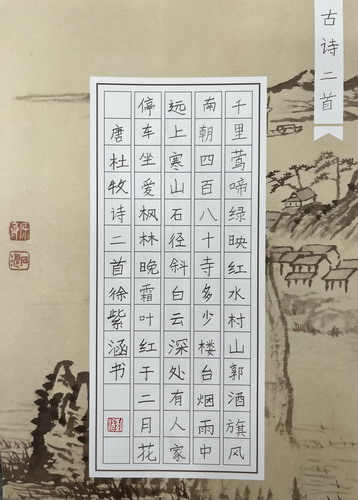 古诗二首
千里莺啼绿映红水村山郭酒旗风
南朝四百八十寺多少楼台烟雨中
远上寒山石径斜白云深处有人家
停车坐爱枫林晚霜叶红于二月花
唐杜牧诗二首徐紫涵书